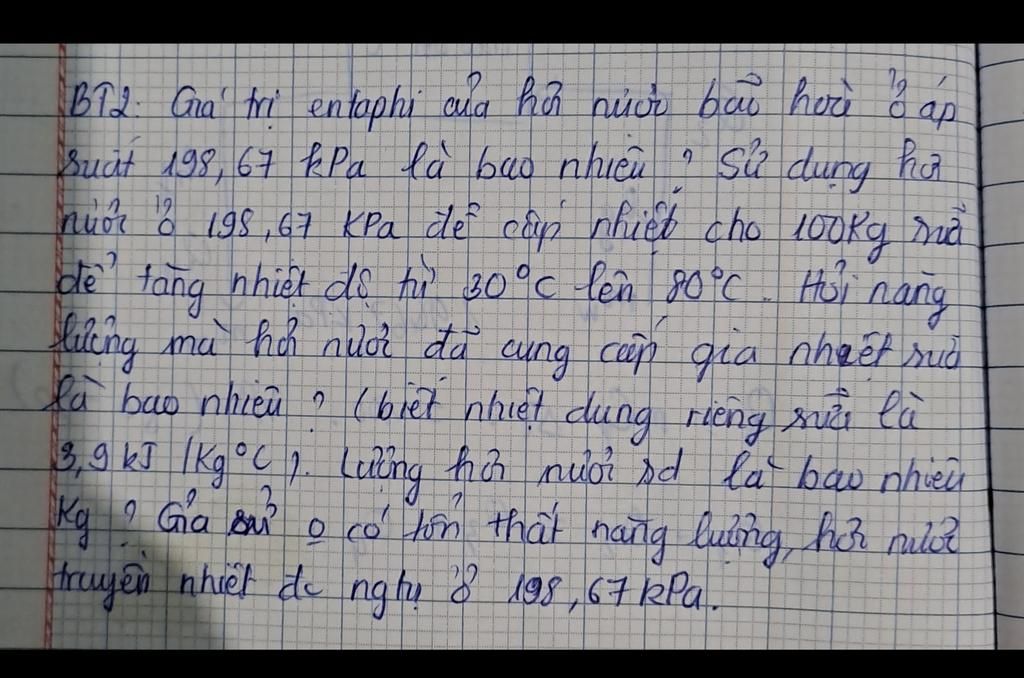 BT2: Giá trị entaphi của hơi nước bão hoà ở áp
suất 198,67 kPa là bao nhiêu? Sử dụng hơi
nước ở 198,67 kPa để cấp nhiệt cho 100kg sữa
để tăng nhiệt độ từ 30°C lên 80°C. Hỏi năng
lượng mà hơi nước đã cung cấp gia nhiệt sữa
là bao nhiêu? (biết nhiệt dung riêng sữa là
3,9 kJ/kg°C). Lượng hơi nước sd là bao nhiêu
kg? Giả sử o có tổn thất năng lượng, hơi nước
truyền nhiệt đc ngtụ ở 198,67 kPa.